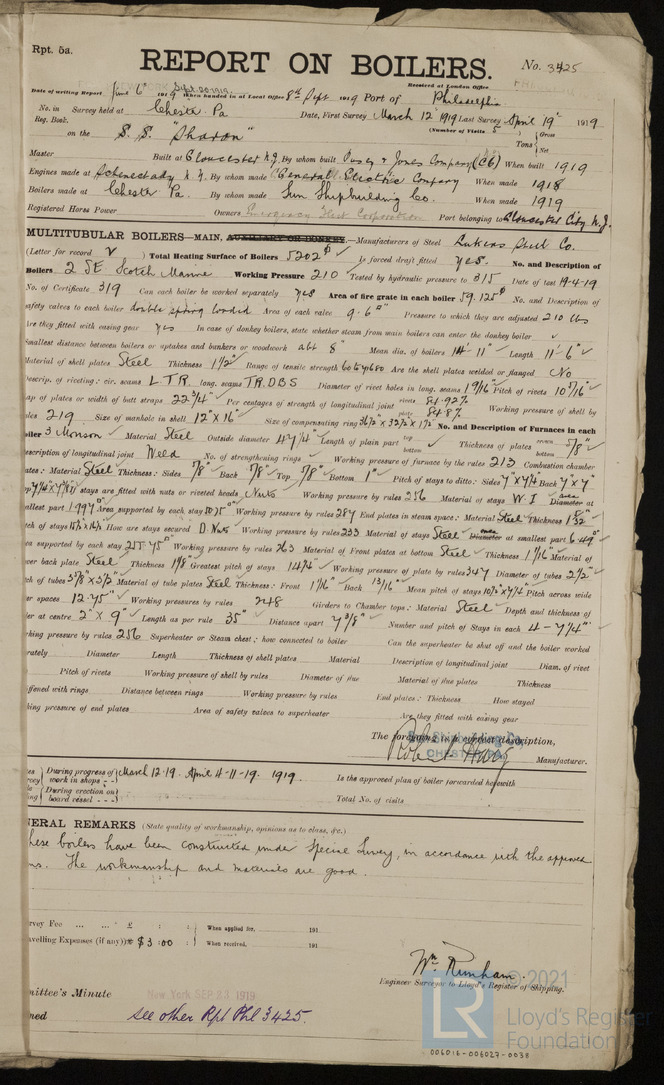 Rpt. 5a.
REPORT ON BOILERS.
No. 3425
Received at London Office
Date of writing Report June 6th 1919 When handed in at Local Office 8th Sept 1919 Port of Philadelphia
No. in Survey held at Chester Pa Date, First Survey March 12th 1919 Last Survey April 19th 1919
Reg. Book. (Number of Visits 5) Gross
on the S.S. "Sharon" Tons Net
Master Built at Gloucester N.J. By whom built Pusey & Jones Company When built 1919
Engines made at Schenectady N.Y. By whom made General Electric Company When made 1918
Boilers made at Chester Pa. By whom made Sun Shipbuilding Co. When made 1919
Registered Horse Power Owners Emergency Fleet Corporation Port belonging to Gloucester City N.J.
MULTITUBULAR BOILERS—MAIN, AUXILIARY OR DONKEY.—Manufacturers of Steel Lukens Steel Co.
(Letter for record ) Total Heating Surface of Boilers 5202 Is forced draft fitted yes. No. and Description of
Boilers 2 SE Scotch Marine Working Pressure 210 Tested by hydraulic pressure to 315 Date of test 19-4-19
No. of Certificate 319 Can each boiler be worked separately yes Area of fire grate in each boiler 59.125 No. and Description of
safety valves to each boiler double spring loaded Area of each valve 9.6 Pressure to which they are adjusted 210 lbs
Are they fitted with easing gear yes In case of donkey boilers, state whether steam from main boilers can enter the donkey boiler
Smallest distance between boilers or uptakes and bunkers or woodwork abt 8" Mean dia. of boilers 14'-11" Length 11'-6"
Material of shell plates Steel Thickness 1½" Range of tensile strength Are the shell plates welded or flanged No
Descrip. of riveting: cir. seams L.T.R. long. seams TR.DBS Diameter of rivet holes in long. seams 19/16 Pitch of rivets 10 5/16
Lap of plates or width of butt straps 22¾" Per centages of strength of longitudinal joint rivets 84.92% plate 84.8% Working pressure of shell by
rules 219 Size of manhole in shell 12" X 16" Size of compensating ring No. and Description of Furnaces in each
boiler 3 Morison Material Steel Outside diameter 47¼" Length of plain part top bottom Thickness of plates crown bottom 5/8"
Description of longitudinal joint Weld No. of strengthening rings Working pressure of furnace by the rules 213 Combustion chamber
plates: Material Steel Thickness: Sides 7/8" Back 7/8" Top 7/8" Bottom 1" Pitch of stays to ditto: Sides Back 7" x 7"
stays are fitted with nuts or riveted heads Nuts Working pressure by rules 256 Material of stays W.I Diameter at
smallest part 1.997 Area supported by each stay Working pressure by rules 287 End plates in steam space: Material Steel Thickness
Pitch of stays How are stays secured D. Nuts Working pressure by rules 233 Material of stays Steel Diameter at smallest part 6.49
Area supported by each stay Working pressure by rules 263 Material of Front plates at bottom Steel Thickness 1 1/16" Material of
Lower back plate Steel Thickness Greatest pitch of stays 14¼" Working pressure of plate by rules 347 Diameter of tubes 2½"
Pitch of tubes Material of tube plates Steel Thickness: Front 1 1/16" Back 13/16" Mean pitch of stays Pitch across wide
water spaces 12.75" Working pressures by rules 248 Girders to Chamber tops: Material Steel Depth and thickness of
girder at centre 2" X 9" Length as per rule 35" Distance apart 7 3/8" Number and pitch of Stays in each 4 - 7¼"
Working pressure by rules 256 Superheater or Steam chest; how connected to boiler Can the superheater be shut off and the boiler worked
rately Diameter Length Thickness of shell plates Material Description of longitudinal joint Diam. of rivet
Pitch of rivets Working pressure of shell by rules Diameter of flue Material of flue plates Thickness
ffened with rings Distance between rings Working pressure by rules End plates: Thickness How stayed
king pressure of end plates Area of safety valves to superheater Are they fitted with easing gear
The foregoing is a correct description,
Manufacturer.
During progress of work in shops - - March 12-19. April 4-11-19. 1919. Is the approved plan of boiler forwarded herewith
During erection on board vessel - - - Total No. of visits
NERAL REMARKS (State quality of workmanship, opinions as to class, &c.)
hese boilers have been constructed under Special Survey, in accordance with the approved
ns. The workmanship and materials are good.
rvey Fee ... ... £ : : When applied for, 191
avelling Expenses (if any) $3 :00 : When received, 191
Wm Runham.
Engineer Surveyor to Lloyd's Register of Shipping.
mittee's Minute New York SEP 23 1919
ned See other Rpt Phl 3425.
© 2021
LR
Lloyd's Register
Foundation
006016-006027-0038